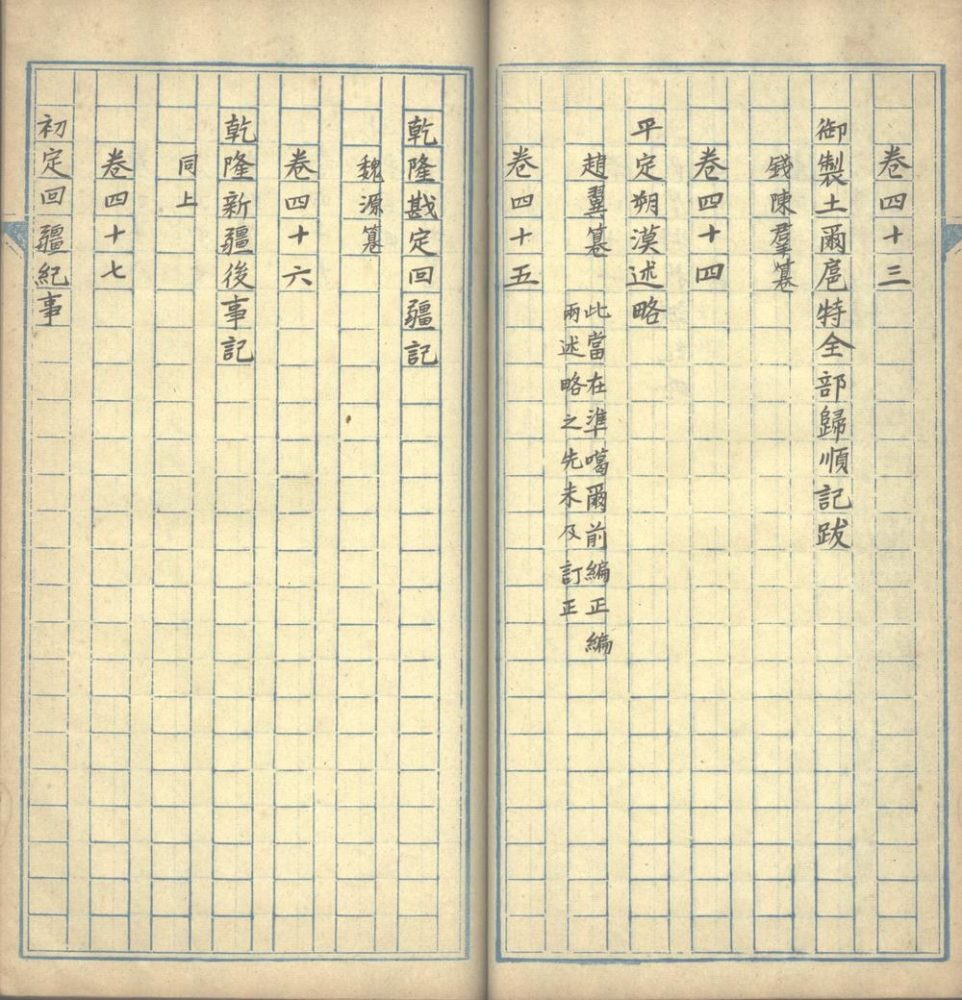 卷四十三
御製土爾扈特全部歸順記跋
錢陳羣篹
卷四十四
平定朔漠述略
趙翼篹
此當在準噶爾前編正編
兩述略之先未及訂正
卷四十五
乾隆戡定回疆記
魏源篹
卷四十六
乾隆新疆後事記
同上
卷四十七
初定回疆紀事